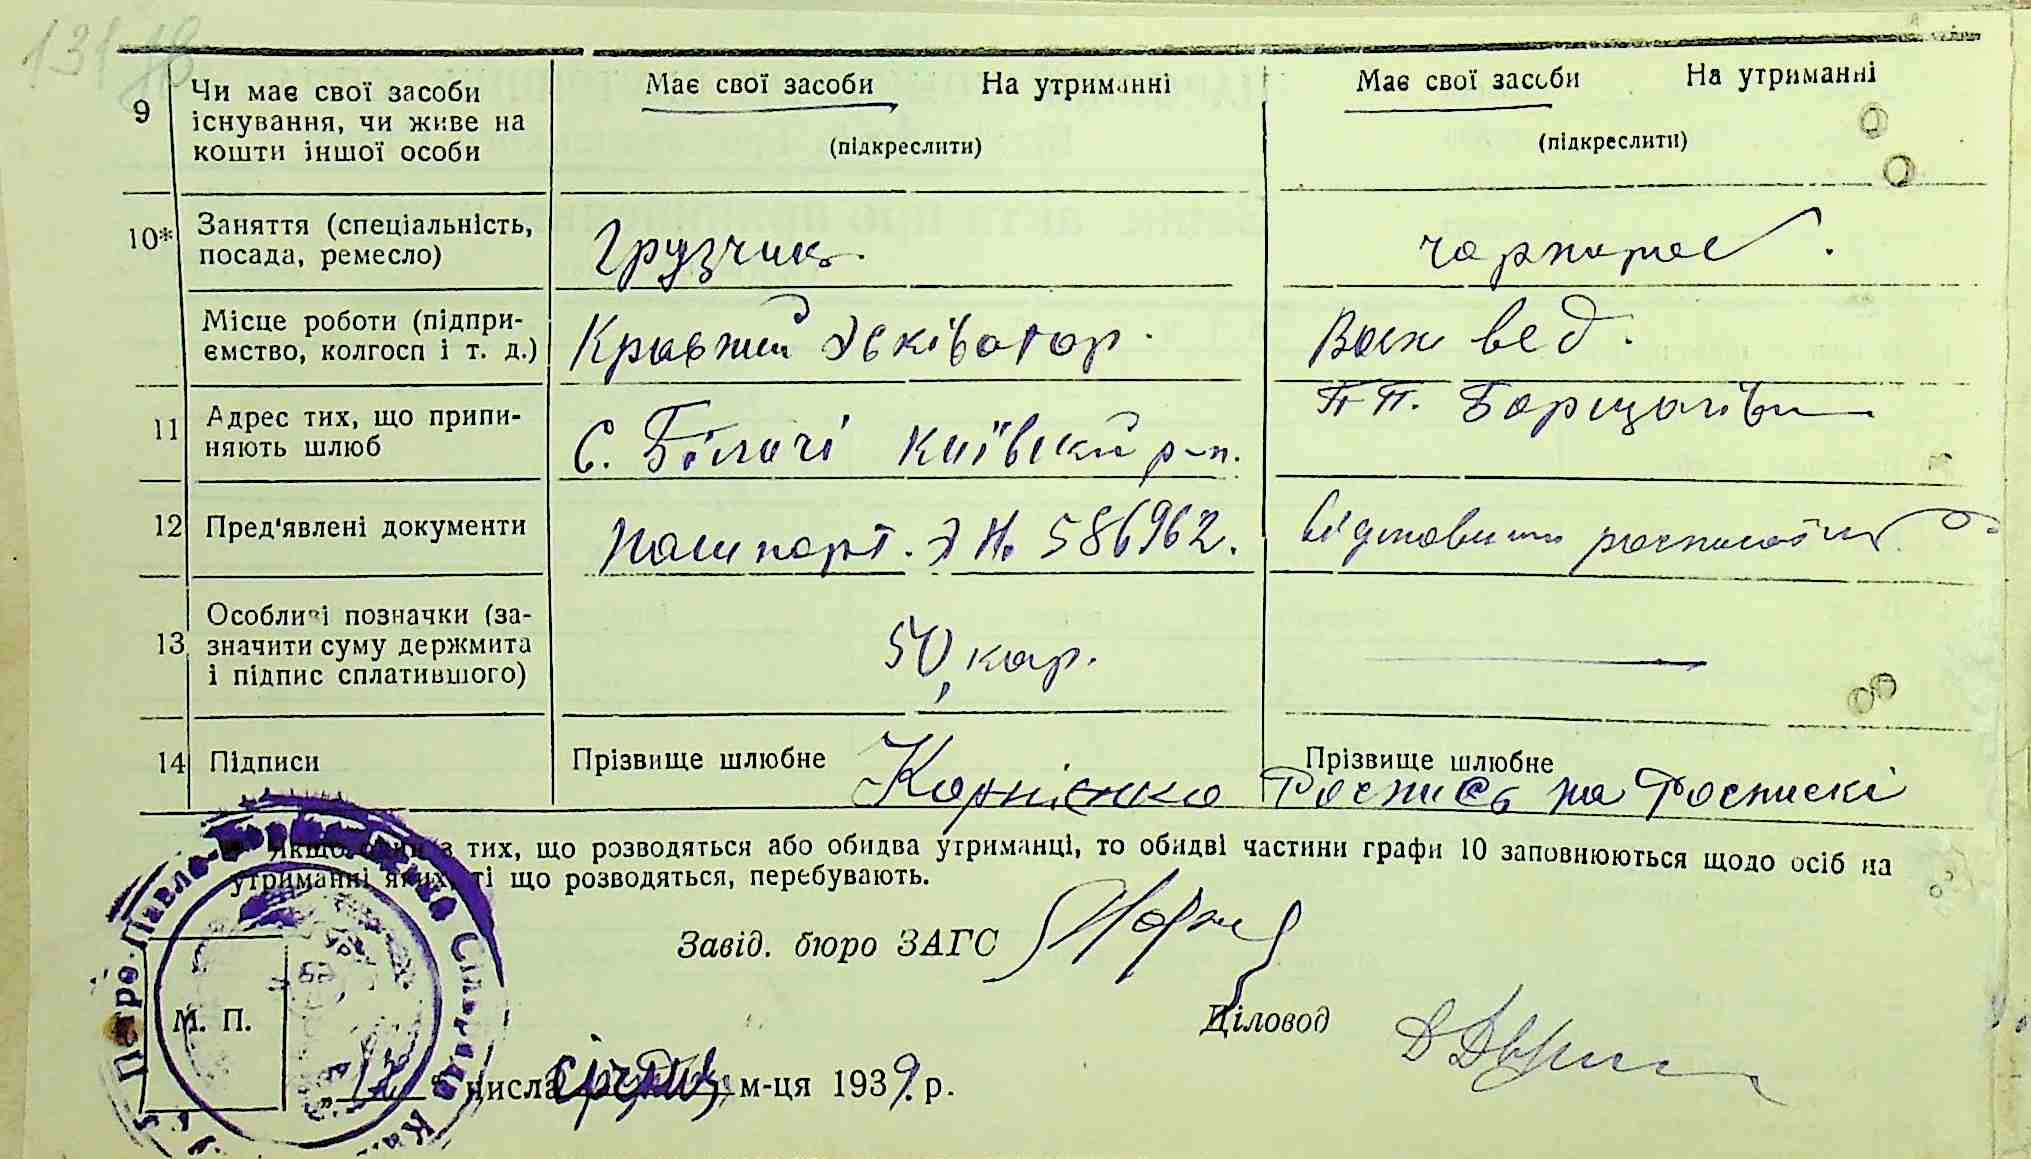 131
9 Чи має свої засоби існування, чи живе на кошти іншої особи
Має свої засоби На утриманні
(підкреслити)
Має свої засоби На утриманні
(підкреслити)
10* Заняття (спеціальність, посада, ремесло)
Грузчик.
чорнороб.
Місце роботи (підпри-
ємство, колгосп і т. д.)
Воєн вед.
11 Адрес тих, що припи-
няють шлюб
С. Біличі Київський р-н.
П П. Борщагівки
12 Пред'явлені документи
Пашпорт. № 586962.
13 Особливі позначки (за-
значити суму держмита
і підпис сплатившого)
50, кар.
14 Підписи
Прізвище шлюбне Корнієнко
Прізвище шлюбне Роспись на Роспискі
Якщо один з тих, що розводяться або обидва утриманці, то обидві частини графи 10 заповнюються щодо осіб на
утриманні яких ті що розводяться, перебувають.
Завід. бюро ЗАГС
Діловод
Петро-Павло-Борщагівська Сільська
М. П.
числа січня м-ця 1939 р.